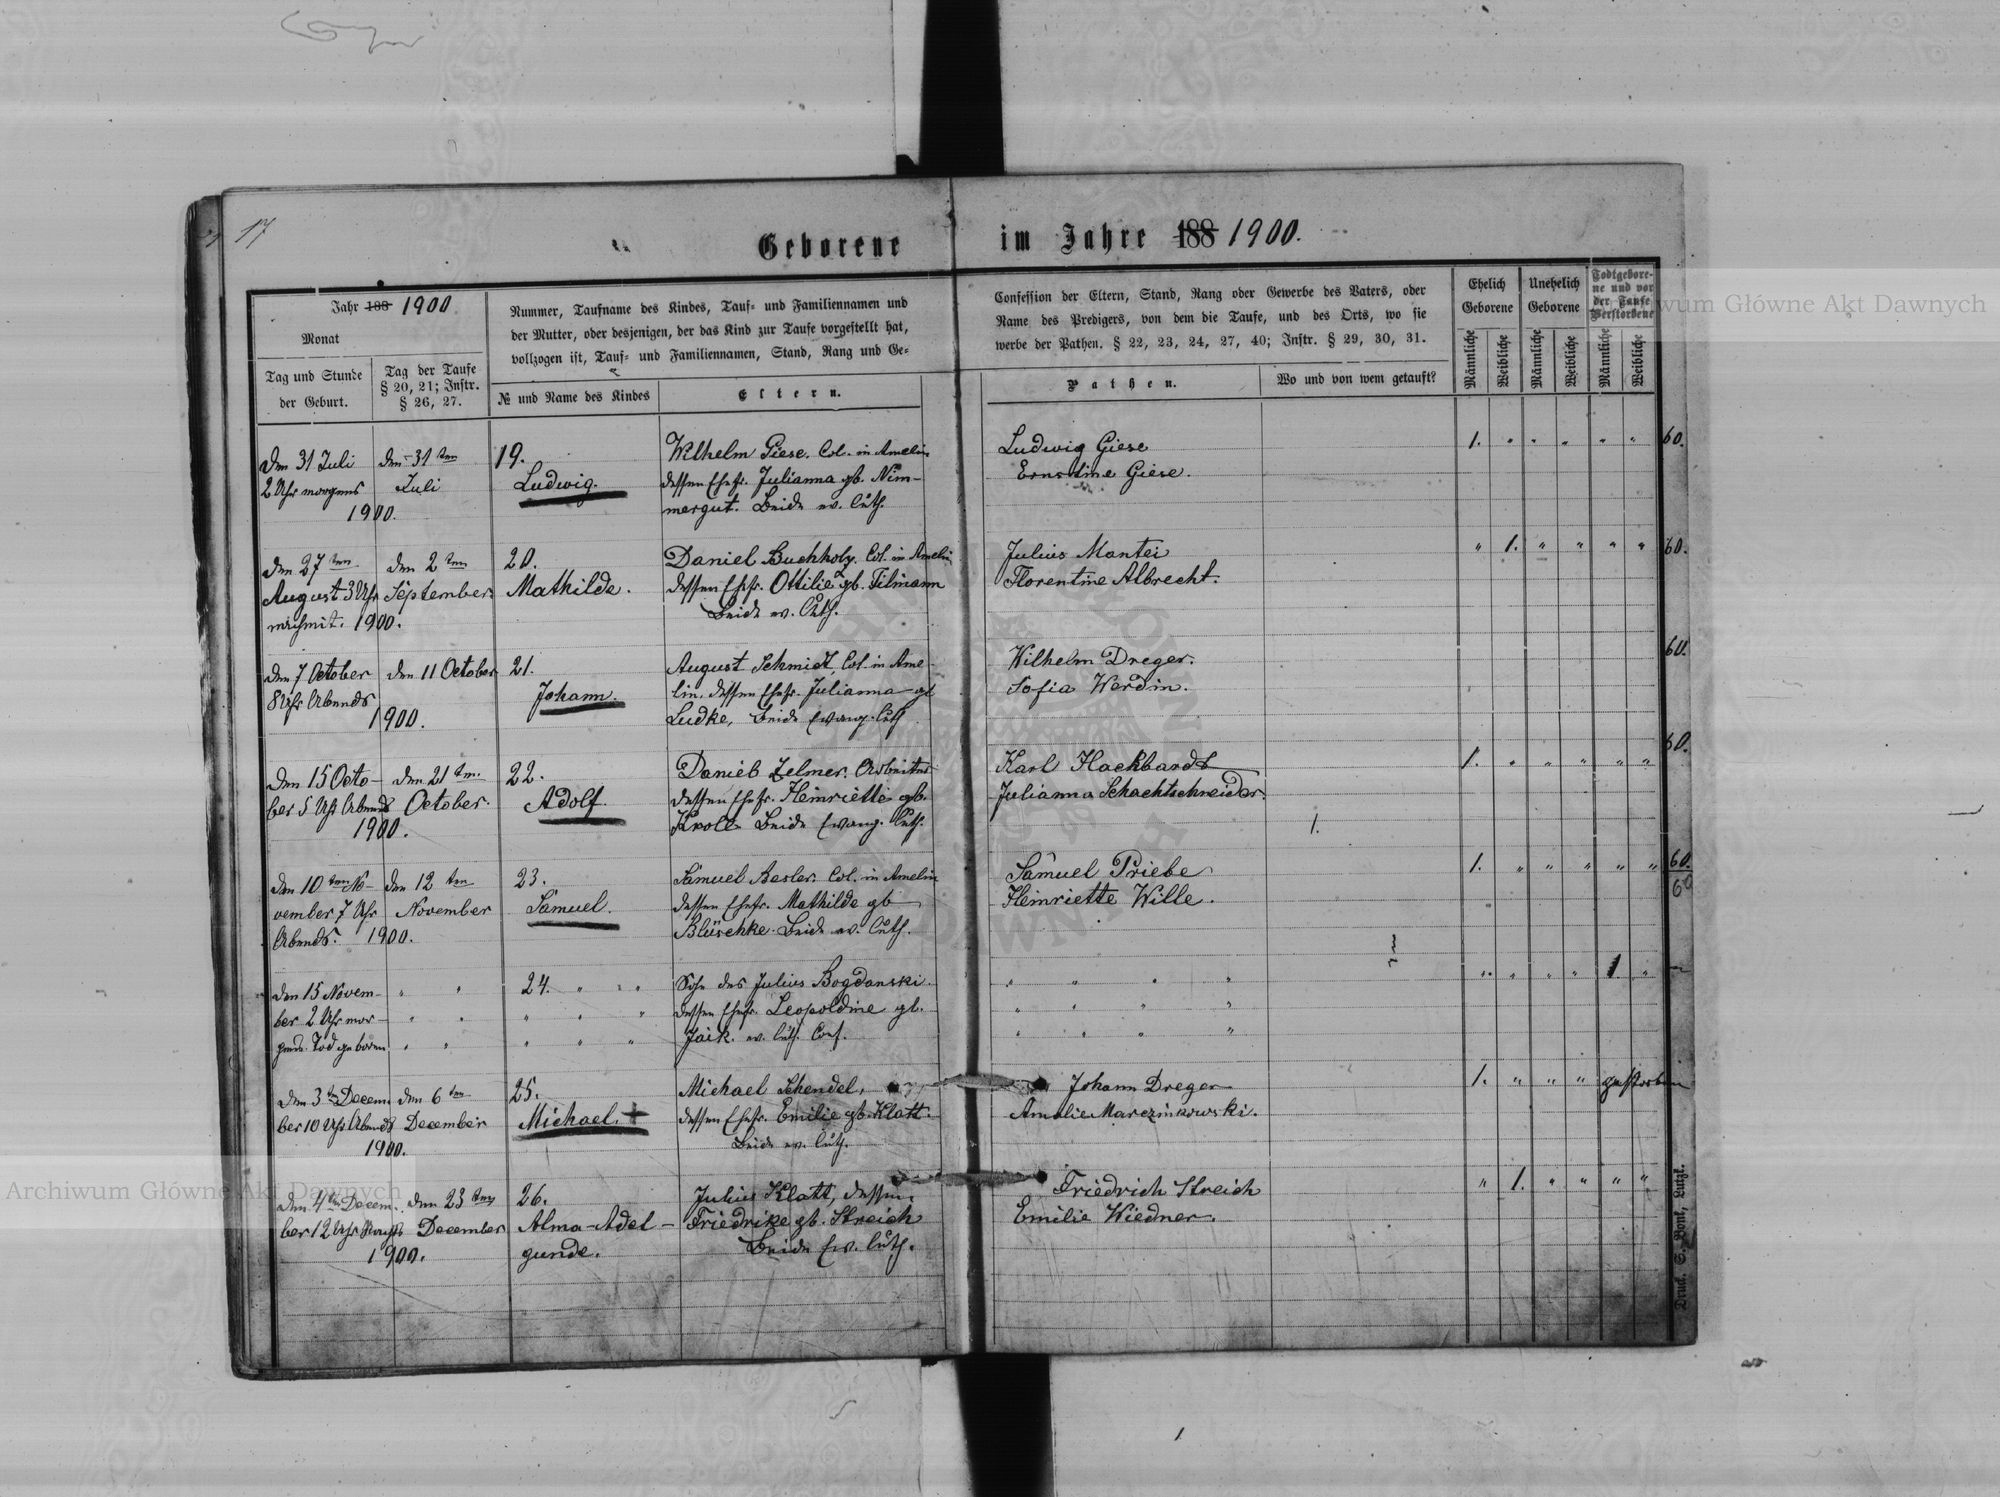 17
Geborene im Jahre 188 1900.
Jahr 188 1900
Monat
Tag und Stunde
der Geburt.
Tag der Taufe
§ 20, 21; Instr.
§ 26, 27.
Nummer, Taufname des Kindes, Tauf- und Familiennamen und
der Mutter, oder desjenigen, der das Kind zur Taufe vorgestellt hat,
vollzogen ist, Tauf- und Familiennamen, Stand, Rang und Ge-
№ und Name des Kindes
Eltern.
Confession der Eltern, Stand, Rang oder Gewerbe des Vaters, oder
Name des Predigers, von dem die Taufe, und des Orts, wo sie
werbe der Pathen. § 22, 23, 24, 27, 40; Instr. § 29, 30, 31.
Pathen.
Wo und von wem getauft?
Ehelich
Geborene
Unehelich
Geborene
Todtgebore-
ne und vor
der Taufe
Verstorbene
Männliche
Weibliche
Männliche
Weibliche
Männliche
Weibliche
Den 31 Juli
2 Uhr morgens
1900.
den 31 ten
Juli
19.
Ludwig.
Wilhelm Giese. Col. in Amelin
dessen Ehefr. Julianna gb. Nim-
mergut. Beide ev. luth.
Ludwig Giese
Ernstine Giese.
1. " " " " " 60.
Den 27 ten
August 3 Uhr
nachmit. 1900.
den 2 ten
September
20.
Mathilde.
Daniel Buchholz. Col. in Amelin
dessen Ehefr. Ottilie gb. Tilmann
Beide ev. luth.
Julius Mantei
Florentine Albrecht.
" 1. " " " " 60.
Den 7 October
8 Uhr Abends
1900.
den 11 October
21.
Johann.
August Schmidt, Col. in Ame-
lin, dessen Ehefr. Julianna gb
Ludke, Beide Evang. luth
Wilhelm Dreger.
Sofia Werdin.
60.
Den 15 Octo-
ber 5 Uhr Abends
1900.
den 21 ten.
October.
22.
Adolf.
Daniel Zelmer. Arbeiter
dessen Ehefr. Heinriette gb.
Kroll Beide Evang. luth.
Karl Hackbardt
Julianna Schachtschneider.
1.
1. " " " " " 60.
Den 10 ten No-
vember 7 Uhr
Abends. 1900.
den 12 ten
November
23.
Samuel.
Samuel Besler. Col. in Amelin
dessen Ehefr. Mathilde gb
Blüschke. Beide ev. luth.
Samuel Priebe
Heinriette Wille.
1. " " " " " 60.
60
Den 15 Novem-
ber 2 Uhr mor-
gens. Tod geboren
24.
Sohn des Julius Bogdanski.
dessen Ehefr. Leopoldine gb.
Jaik. ev. luth. Conf.
" " " " 1 "
Den 3 ten Decem-
ber 10 Uhr Abends
1900.
den 6 ten
December
25.
Michael. +
Michael Schendel,
dessen Ehefr. Emilie gb. Klatt.
Beide ev. luth.
Johann Dreger
Amalie Marczinkowski.
1. " " " gestorben
Den 4 ten Decem-
ber 12 Uhr Nachts
1900.
den 23 ten
December
26.
Alma-Adel-
gunde.
Julius Klatt, dessen
Friedrike gb. Streich
Beide Ev. luth.
Friedrich Streich
Emilie Wiedner.
" 1. " " " "
Druck. S. Bonk, Lutzk.
Archiwum Główne Akt Dawnych
Archiwum Główne Akt Dawnych